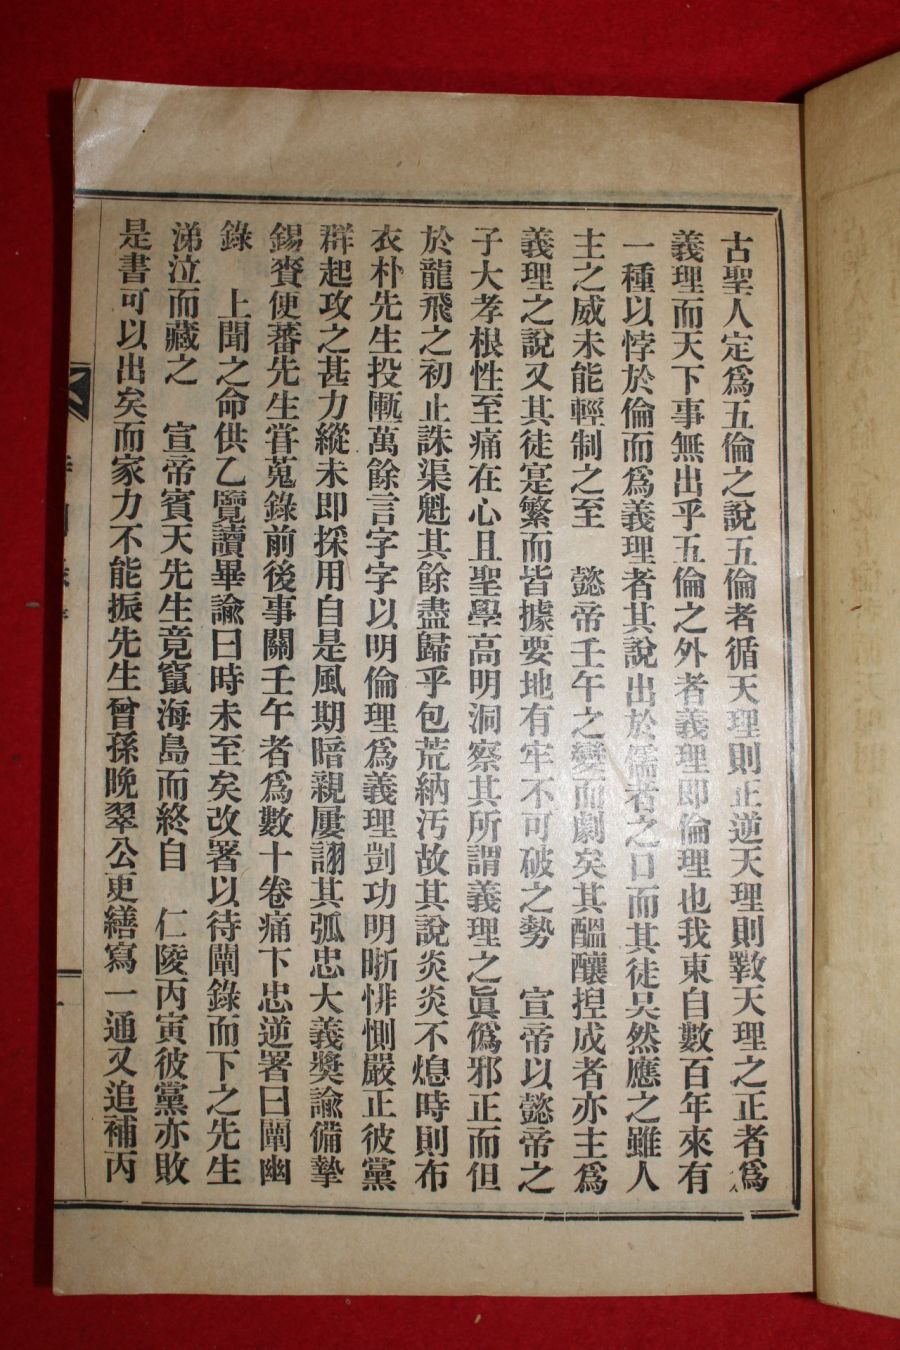 古聖人定爲五倫之說五倫者循天理則正逆天理則斁天理之正者爲
義理而天下事無出乎五倫之外者義理即倫理也我東自數百年來有
一種以悖於倫而爲義理者其說出於儒者之口而其徒吴然應之雖人
主之威未能輕制之至　懿帝壬午之變而劇矣其醞釀揑成者亦主爲
義理之說又其徒寔繁而皆據要地有牢不可破之勢　宣帝以懿帝之
子大孝根性至痛在心且聖學高明洞察其所謂義理之眞僞邪正而但
於龍飛之初止誅渠魁其餘盡歸乎包荒納汚故其說炎炎不熄時則布
衣朴先生投匭萬餘言字字以明倫理爲義理剴功明晣悱惻嚴正彼黨
群起攻之甚力縱未即採用自是風期暗親屢詡其弧忠大義奬諭備摯
錫賚便蕃先生甞蒐錄前後事關壬午者爲數十卷痛卞忠逆署曰闡幽
錄　上聞之命供乙覽讀畢諭曰時未至矣改署以待闡錄而下之先生
涕泣而藏之　宣帝賓天先生竟竄海島而終自　仁陵丙寅彼黨亦敗
是書可以出矣而家力不能振先生曾孫晩翠公更繕寫一通又追補丙